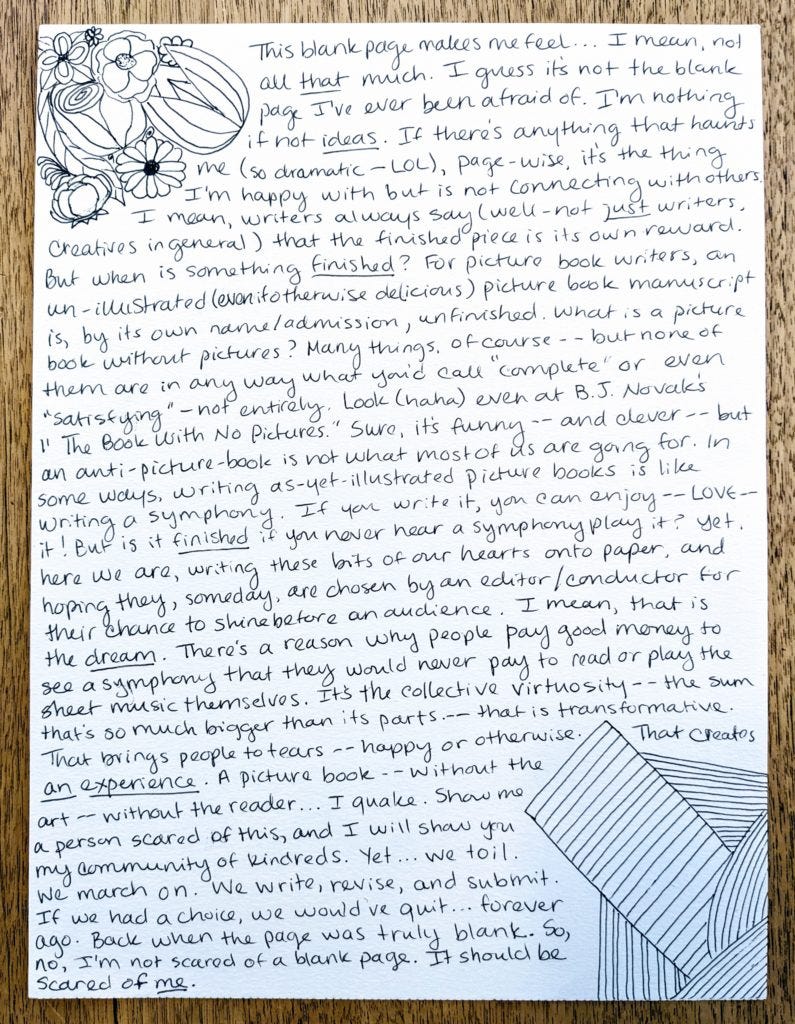 This blank page makes me feel... I mean, not
all that much. I guess it's not the blank
page I've ever been afraid of. I'm nothing
if not ideas. If there's anything that haunts
me (so dramatic - LOL), page-wise, it's the thing
I'm happy with but is not connecting with others.
I mean, writers always say (well - not just writers,
Creatives in general) that the finished piece is its own reward.
But when is something finished? For picture book writers, an
un-illustrated (even if otherwise delicious) picture book manuscript
is, by its own name/admission, unfinished. What is a picture
book without pictures? Many things, of course -- but none of
them are in any way what you'd call "complete" or even
"satisfying" - not entirely. Look (haha) even at B.J. Novak's
"The Book With No Pictures." Sure, it's funny -- and clever -- but
an anti-picture-book is not what most of us are going for. In
some ways, writing as-yet-illustrated picture books is like
writing a symphony. If you write it, you can enjoy -- LOVE --
it! But is it finished if you never hear a symphony play it? Yet,
here we are, writing these bits of our hearts onto paper, and
hoping they, someday, are chosen by an editor/conductor for
their chance to shine before an audience. I mean, that is
the dream. There's a reason why people pay good money to
see a symphony that they would never pay to read or play the
sheet music themselves. It's the collective virtuosity -- the sum
that's so much bigger than its parts -- that is transformative.
That brings people to tears -- happy or otherwise. That creates
an experience. A picture book -- without the
art -- without the reader... I quake. Show me
a person scared of this, and I will show you
my community of kindreds. Yet... we toil.
We march on. We write, revise, and submit.
If we had a choice, we would've quit... forever
ago. Back when the page was truly blank. So,
no, I'm not scared of a blank page. It should be
scared of me.